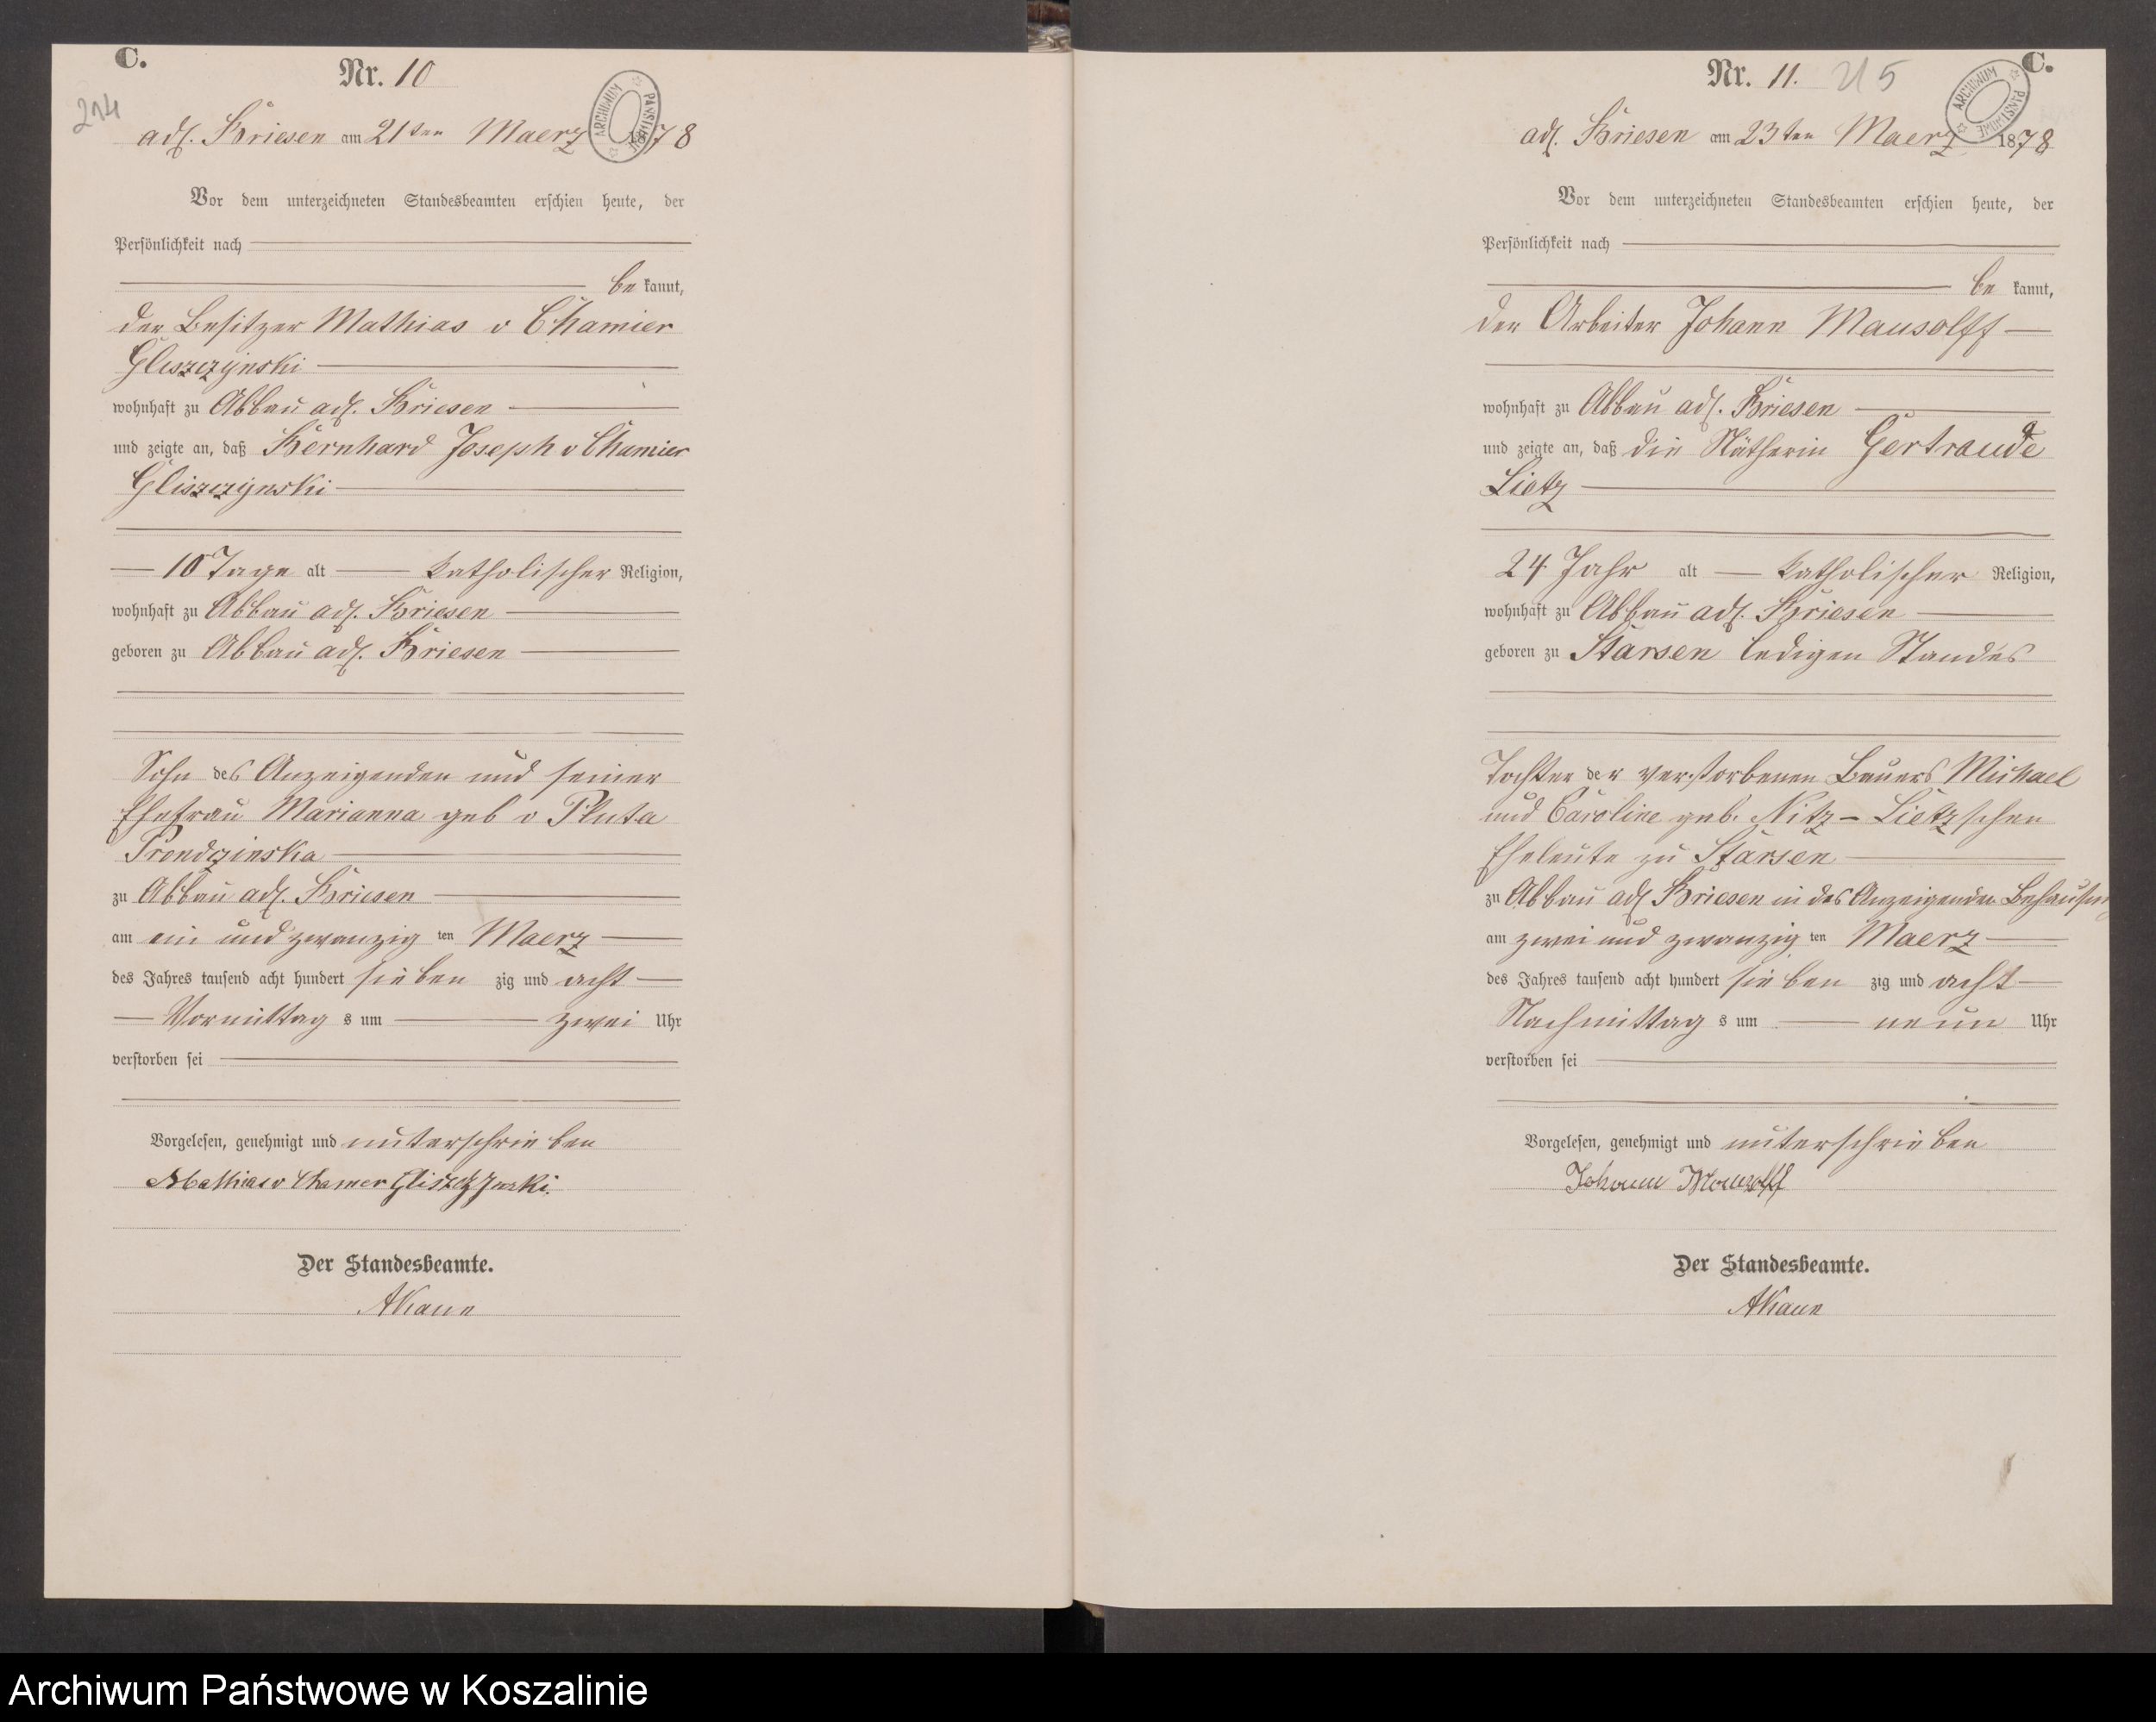 C.
Nr. 10
214
adl. Briesen am 21ten Maerz 1878
Vor dem unterzeichneten Standesbeamten erschien heute, der
Persönlichkeit nach
be kannt,
der Besitzer Mathias v Chamier
Gliszczynski
wohnhaft zu Abbau adl. Briesen
und zeigte an, daß Bernhard Joseph v Chamier
Gliszczynski
10 Tage alt katholischer Religion,
wohnhaft zu Abbau adl. Briesen
geboren zu Abbau adl. Briesen
Sohn des Anzeigenden und seiner
Ehefrau Marianna geb v Pluta
Prondzinska
zu Abbau adl. Briesen
am ein und zwanzig ten Maerz
des Jahres tausend acht hundert sieben zig und acht
Vormittag s um zwei Uhr
verstorben sei
Vorgelesen, genehmigt und unterschrieben
Mathias v Chamer Gliszczynski.
Der Standesbeamte.
ARCHIWUM PAŃSTWOWE
C.
Nr. 11. 215
adl. Briesen am 23ten Maerz 1878
Vor dem unterzeichneten Standesbeamten erschien heute, der
Persönlichkeit nach
be kannt,
der Arbeiter Johann Mausolff
wohnhaft zu Abbau adl. Briesen
und zeigte an, daß die Nätherin Gertraude
Lietz
24 Jahr alt katholischer Religion,
wohnhaft zu Abbau adl. Briesen
geboren zu Starsen ledigen Standes
Tochter der verstorbenen Bauers Michael
und Caroline geb. Nitz - Lietzschen
Eheleute zu Starsen
zu Abbau adl Briesen in des Anzeigenden Behausung
am zwei und zwanzig ten Maerz
des Jahres tausend acht hundert sieben zig und acht
Nachmittag s um neun Uhr
verstorben sei
Vorgelesen, genehmigt und unterschrieben
Johann Mausolff
Der Standesbeamte.
ARCHIWUM PAŃSTWOWE
Archiwum Państwowe w Koszalinie